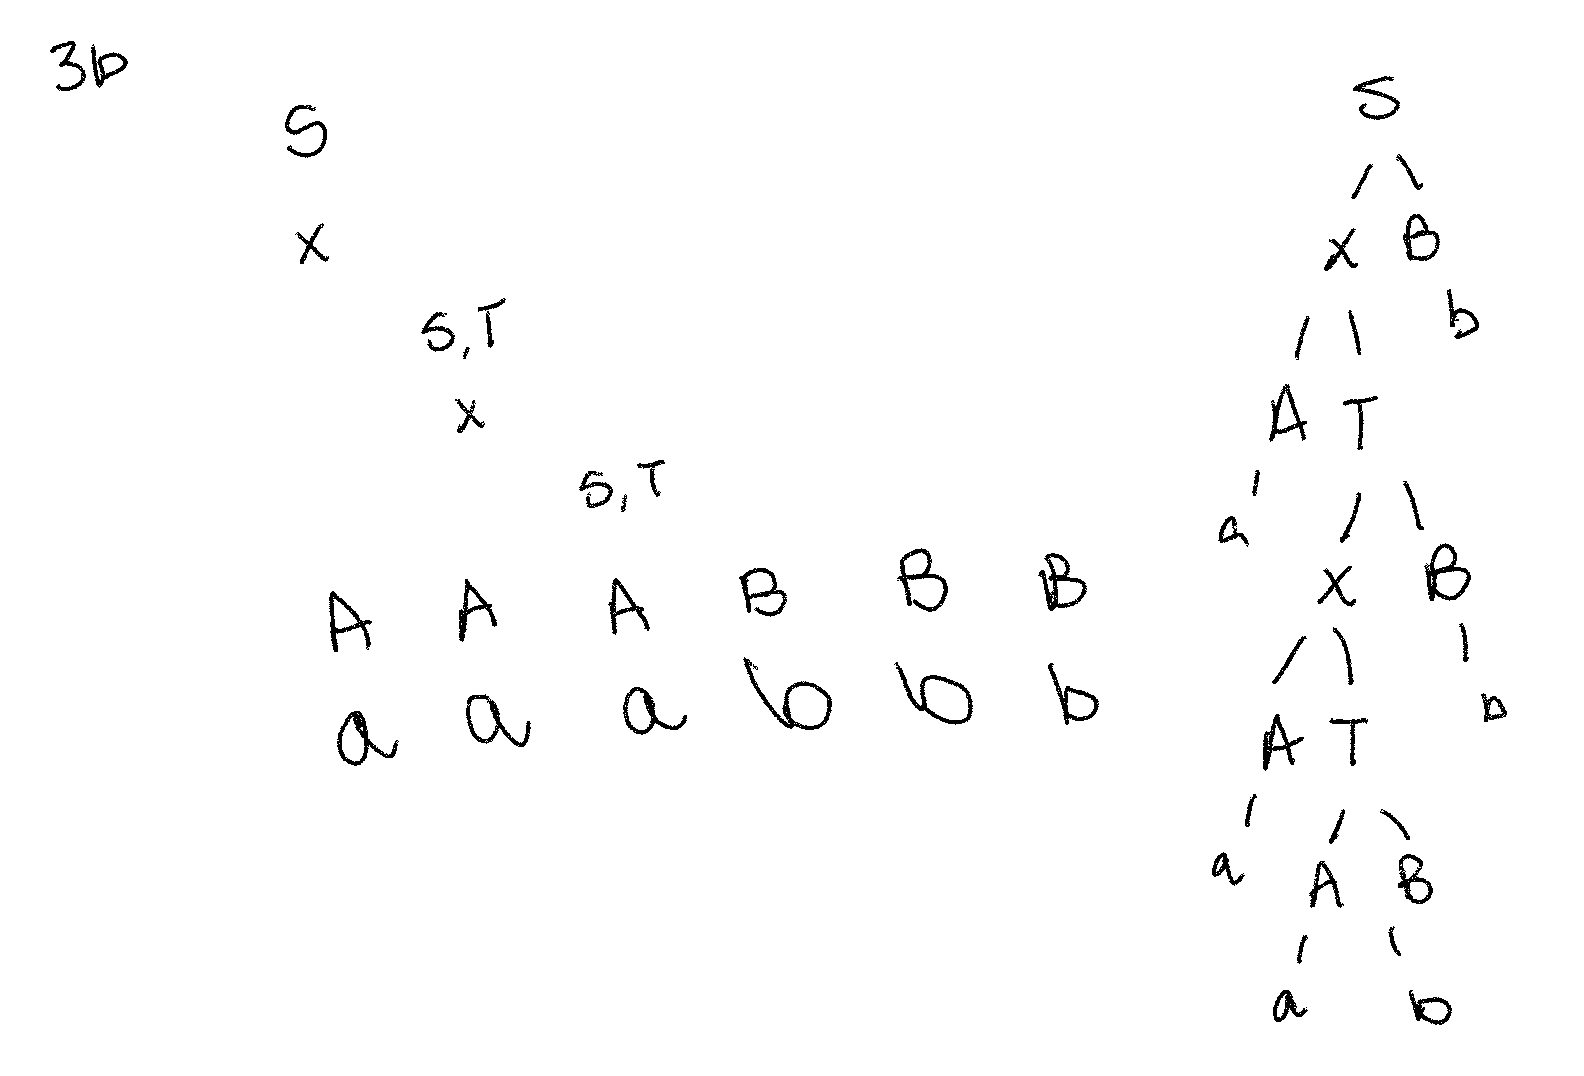 3b
S
X
S,T
X
S,T
A A A B B B
a a a b b b
S
X B
b
A T
a
X B
b
A T
a
A B
a b